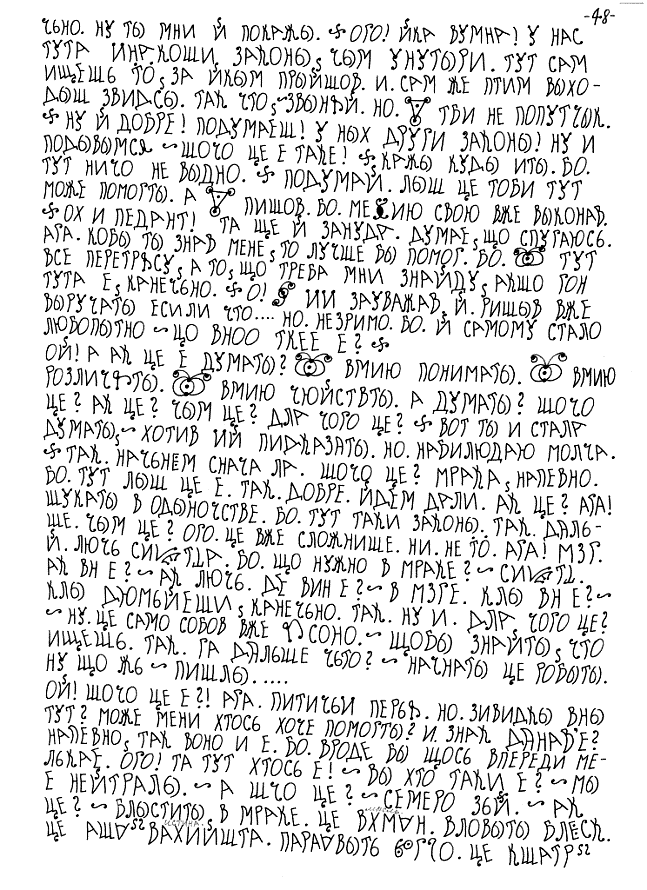 -48-
ЧЬНО. НУ ТЫ МНИ Й ПОКАЖЫ. ОГО! ЙКА ВУМНА! У НАС
ТУТА ИНАКОШИ, ЗАКОНЫ, ЧЫМ УНУТЫРИ. ТУТ САМ
ИЩЕШЬ ТО, ЗА ЙКЫМ ПРЫЙШОВ. И. САМ ЖЕ ПТИМ ВЫХО-
ДЫШ ЗВИДСЫ. ТАК ЧТО, ЗВЫНЯЙ. НО. ТВИ НЕ ПОПУТЧЫК.
НУ Й ДОБРЕ! ПОДУМАЕШ! У НЫХ ДРУГИ ЗАКОНЫ! НУ И
ПОДЫВЫМСЯ ~ ШОЧО ЦЕ Е ТАКЕ! КАЖЫ КУДЫ ИТЫ. БО.
ТУТ НИЧО НЕ ВЫДНО. ПОДУМАЙ. ЛЫШ ЦЕ ТОБИ ТУТ
МОЖЕ ПОМОГТЫ. А ПИШОВ. БО. СВОЮ ВЖЕ ВЫКОНАВ.
ОХ И ПЕДАНТ! ТА ЩЕ Й ЗАНУДА. ДУМАЕ, ЩО СПУГАЮСЬ.
АГА. КОБЫ ТЫ ЗНАВ МЕНЕ, ТО ЛУЧШЕ БЫ ПОМОГ. БО. ТУТ
ВСЕ ПЕРЕТРЯСУ, А ТО, ЩО ТРЕБА МНИ ЗНАЙДУ, АКШО ГОН
ТУТА Е, КАНЕЧЬНО. О! ИИ ЗАУВАЖАВ, Й. РИШЫВ ВЖЕ
ВЫРУЧАТЫ ЕСИЛИ ЧТО.... НО. НЕЗРИМО. БО. Й САМОМУ СТАЛО
ЛЮБОПЫТНО ~ ЦО ВНОО ТКЕЕ Е?
ОЙ! А АК ЦЕ Е ДУМАТЫ? ВМИЮ ПОНИМАТЫ. ВМИЮ
РОЗЛИЧАТЫ. ВМИЮ ЧЮЙСТВТЫ. А ДУМАТЫ? ШОЧО
ЦЕ? АК ЦЕ? ЧЫМ ЦЕ? ДЛА ЧОГО ЦЕ? ВОТ ТЫ И СТАЛА
ДУМАТЫ, ~ ХОТИВ ИЙ ПИДКАЗАТЫ. НО. НАБИЛЮДАЮ МОЛЧА.
ТАК. НАЧЬНЕМ СНАЧА ЛА. ШОЧО ЦЕ? МРАКА, НАПЕВНО.
БО. ТУТ ЛЫШ ЦЕ Е. ТАК. ДОБРЕ. ЙДЕМ ДАЛИ. АК ЦЕ? АГА!
ШУКАТЫ В ОДЫНОЧСТВЕ. БО. ТУТ ТАКИ ЗАКОНЫ. ТАК. ДАЛЬ-
ШЕ. ЧЫМ ЦЕ? ОГО. ЦЕ ВЖЕ СЛОЖНИШЕ. НИ. НЕ ТО. АГА! МЗГ.
Й. ЛЮЧЬ БО. ЩО НУЖНО В МРАКЕ? ~
АК ВН Е? ~ АК ЛЮЧЬ. ДЕ ВИН Е? ~ В МЗГЕ. КЛЫ ВН Е? ~
КЛЫ ДЮМЬЙЕШИ, КАНЕЧЬНО. ТАК. НУ И. ДЛА, ЧОГО ЦЕ?
~ НУ. ЦЕ САМО СОБОВ ВЖЕ СОНО. ~ ЩОБЫ ЗНАЙТЫ, ЧТО
ИЩЕШЬ. ТАК. ГА ДАЛЬШЕ ЧЬТО? ~ НАЧНАТЫ ЦЕ РОБЫТЫ.
НУ ЩО ЖЬ ~ ПИШЛЫ.....
ОЙ! ШОЧО ЦЕ Е?! АГА. ПИТИЧЬИ ПЕРЬЯ. НО. ЗИВИДКЫ ВНЫ
ТУТ? МОЖЕ МЕНИ ХТОСЬ ХОЧЕ ПОМОГТЫ? И. ЗНАК ДАНАВЕ?
НАПЕВНО, ТАК ВОНО И Е. БО. ВРОДЕ БЫ ЩОСЬ ВПЕРЕДИ МЕ-
ЛЬКАЕ. ОГО! ТА ТУТ ХТОСЬ Е! ~ ВЫ ХТО ТАКИ Е? ~ МЫ
Е НЕЙТРАЛЫ. ~ А ШЧО ЦЕ? ~ СЕМЕРО ЗЬЙ. ~ АК
ЦЕ? ~ БЛЫСТИТЫ, В МРАКЕ. ЦЕ ВХМАН. ВЛОВЫТЫ ВЛЕСК.
ЦЕ АША ВАХИЙШТА. ПАРАВЫТЬ ЦЕ КШАТР